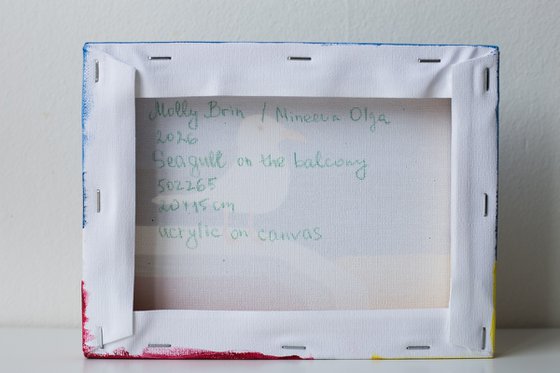 Molly Brin / Mineeva Olga
2026
Seagull on the balcony
502265
20×15 cm
acrylic on canvas